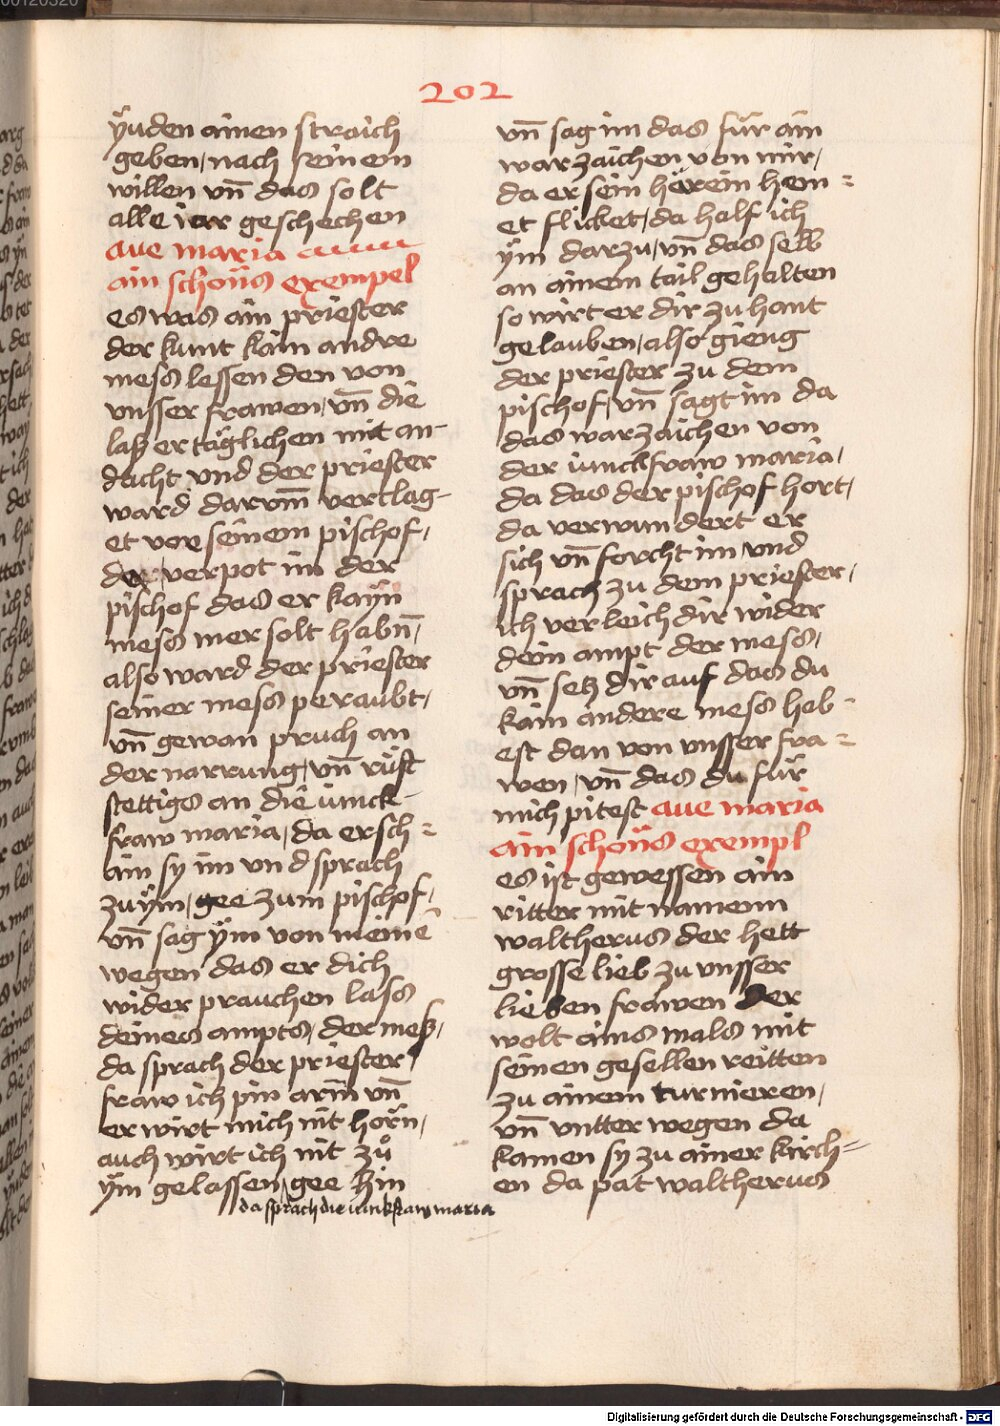 202
ÿuden ainen straich
geben / nach seinem
willen vn̄ das solt
alle iar geschechen
aue maria
ain schöns exempel
es was ain priester
der kunt kain andre
mess lessen den von
vnsser frawen / vn̄ die
lasz er täglichen mit an-
dacht vnd der priester
ward darvm̄ verclag-
et vor seinem pischof /
der verpot im der
pischof das er kayn
mess mer solt habn̄ /
also ward der priester
seiner mess peraubt /
vn̄ gewan pruch an
der narrung / vn̄ rüft
stettigs an die iunck-
fraw maria / da ersch=
ain sy im vnd sprach
zu ÿm / gee zum pischof /
vn̄ sag ÿm von meinē
wegen das er dich
wider prauchen lass
deines ampts / der mesz /
da sprach der priester /
fraw ich pin arm̄ vn̄
er wirt mich nit hörn /
auch wirt ich nit zů
ÿm gelassen / gee hin
da sprach die iunkfraw maria
vn̄ sag im das für ain
warzaichen von mir /
da er sein härein hem=
et flicket / da half ich
ÿm darzu / vn̄ das selb
an ainem tail gehalten
so wirt er dir zu hant
gelauben / also gieng
der priester zu dem
pischof / vn̄ sagt im da
das warzaichen von
der iunckfraw maria /
da das der pischof hort /
da verwundert er
sich vn̄ forcht im / vnd
sprach zu dem priester /
ich verleich dir wider
dein ampt der mess /
vn̄ setz dir auf das du
kain andere mess hab-
est dan von vnsser fra=
wen / vn̄ das du für
mich pitest aue maria
ain schöns exempl
es ist gewessen ain
ritter mit namenn
waltherus der hett
grosse lieb zu vnsser
lieben frawen der
wolt ains mals mit
seinen gesellen reitten
zu ainem turnieren /
vn̄ vntter wegen da
kamen sy zu ainer kirch=
en da pat waltherus
Digitalisierung gefördert durch die Deutsche Forschungsgemeinschaft - DFG